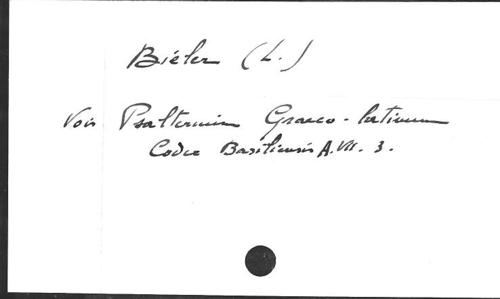 Bieler (L.)
Voir Psalterium Graeco-latinum
Codex Basiliensis A.VII.3.